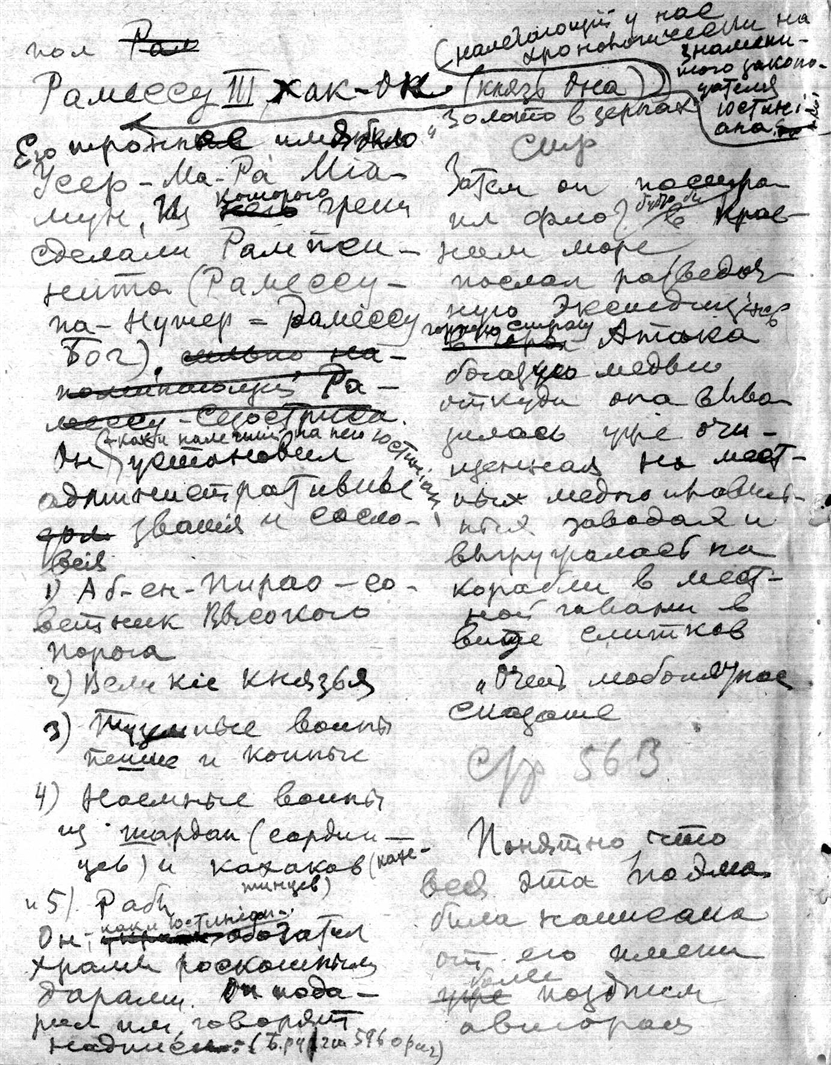 пол Рам
Рамессу III хак-Он (князь Она)
(налегающий у нас
хронологически на
знамени-
того законо-
дателя
Юстині-
ана
Его тронное имя было
Усер-Ма-Ра Міа-
мун, из которого греки
сделали Рампси-
нита (Рамессу-
па-Нутер = Рамессу
Бог), сильно на-
поминающий Ра-
мессу-Сезостриса.
Он (как и налегший на него Юстиніан)
установил
административные
звания и сосло-
вия
1) Аб-ен-Пирао-со-
ветник Высокого
порога
2) Великіе князья
3) Туземные воины
пешие и конные
4) Наемные воины
из шардан (сардин-
цев) и кахаков
и 5) Рабы
Он, как и Юстиніан, обогатил
храмы роскошными
дарами. Он пода-
рил им, говорят
надписи: (Бругш 596 ориг)
"Золото в зернах"
стр
Затем он построи-
ил флот в Крас-
ном море
послал разведоч-
ную экспедицію в
горную страну Атака
богатую медью
откуда она выво-
зилась уже очи-
щенная на мест-
ных медноплавиль-
ных заводах и
выгружалась на
корабли в мест-
ной гавани в
виде слитков
"Очень любопытное
сказание
стр 563
Понятно, что
вся эта поэма
была написана
от его имени
уже более поздним
автором